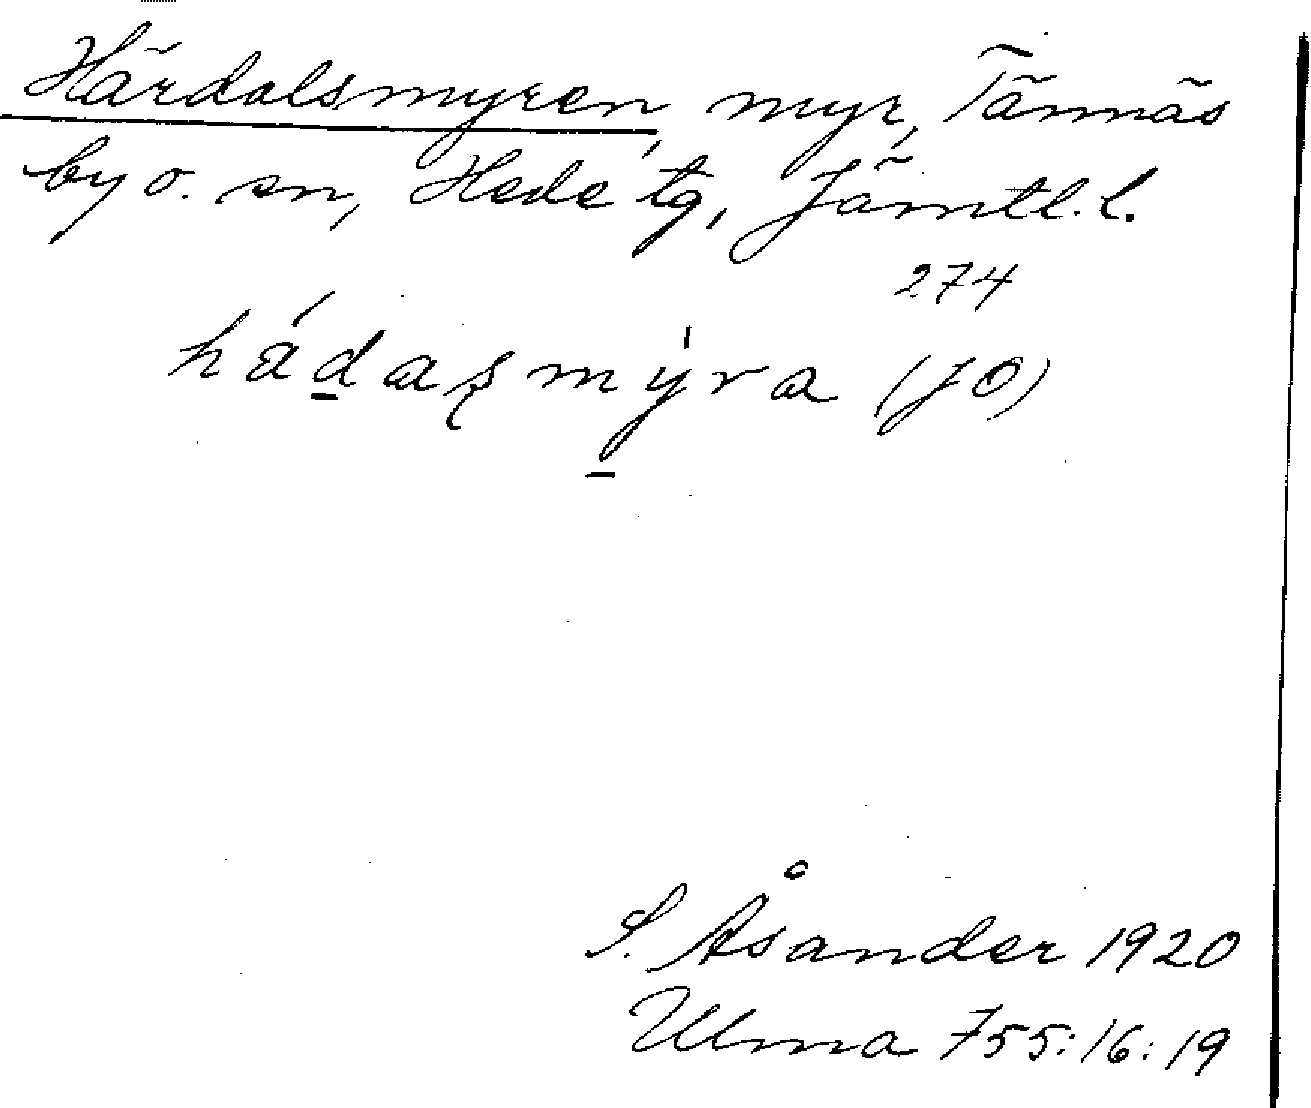 Härdalsmyren, myr, Tännäs
by o. sn, Hede tg, Jämtl. l.
274
hádaʂmýra (JO)
S. Åsander 1920
Ulma 755:16:19